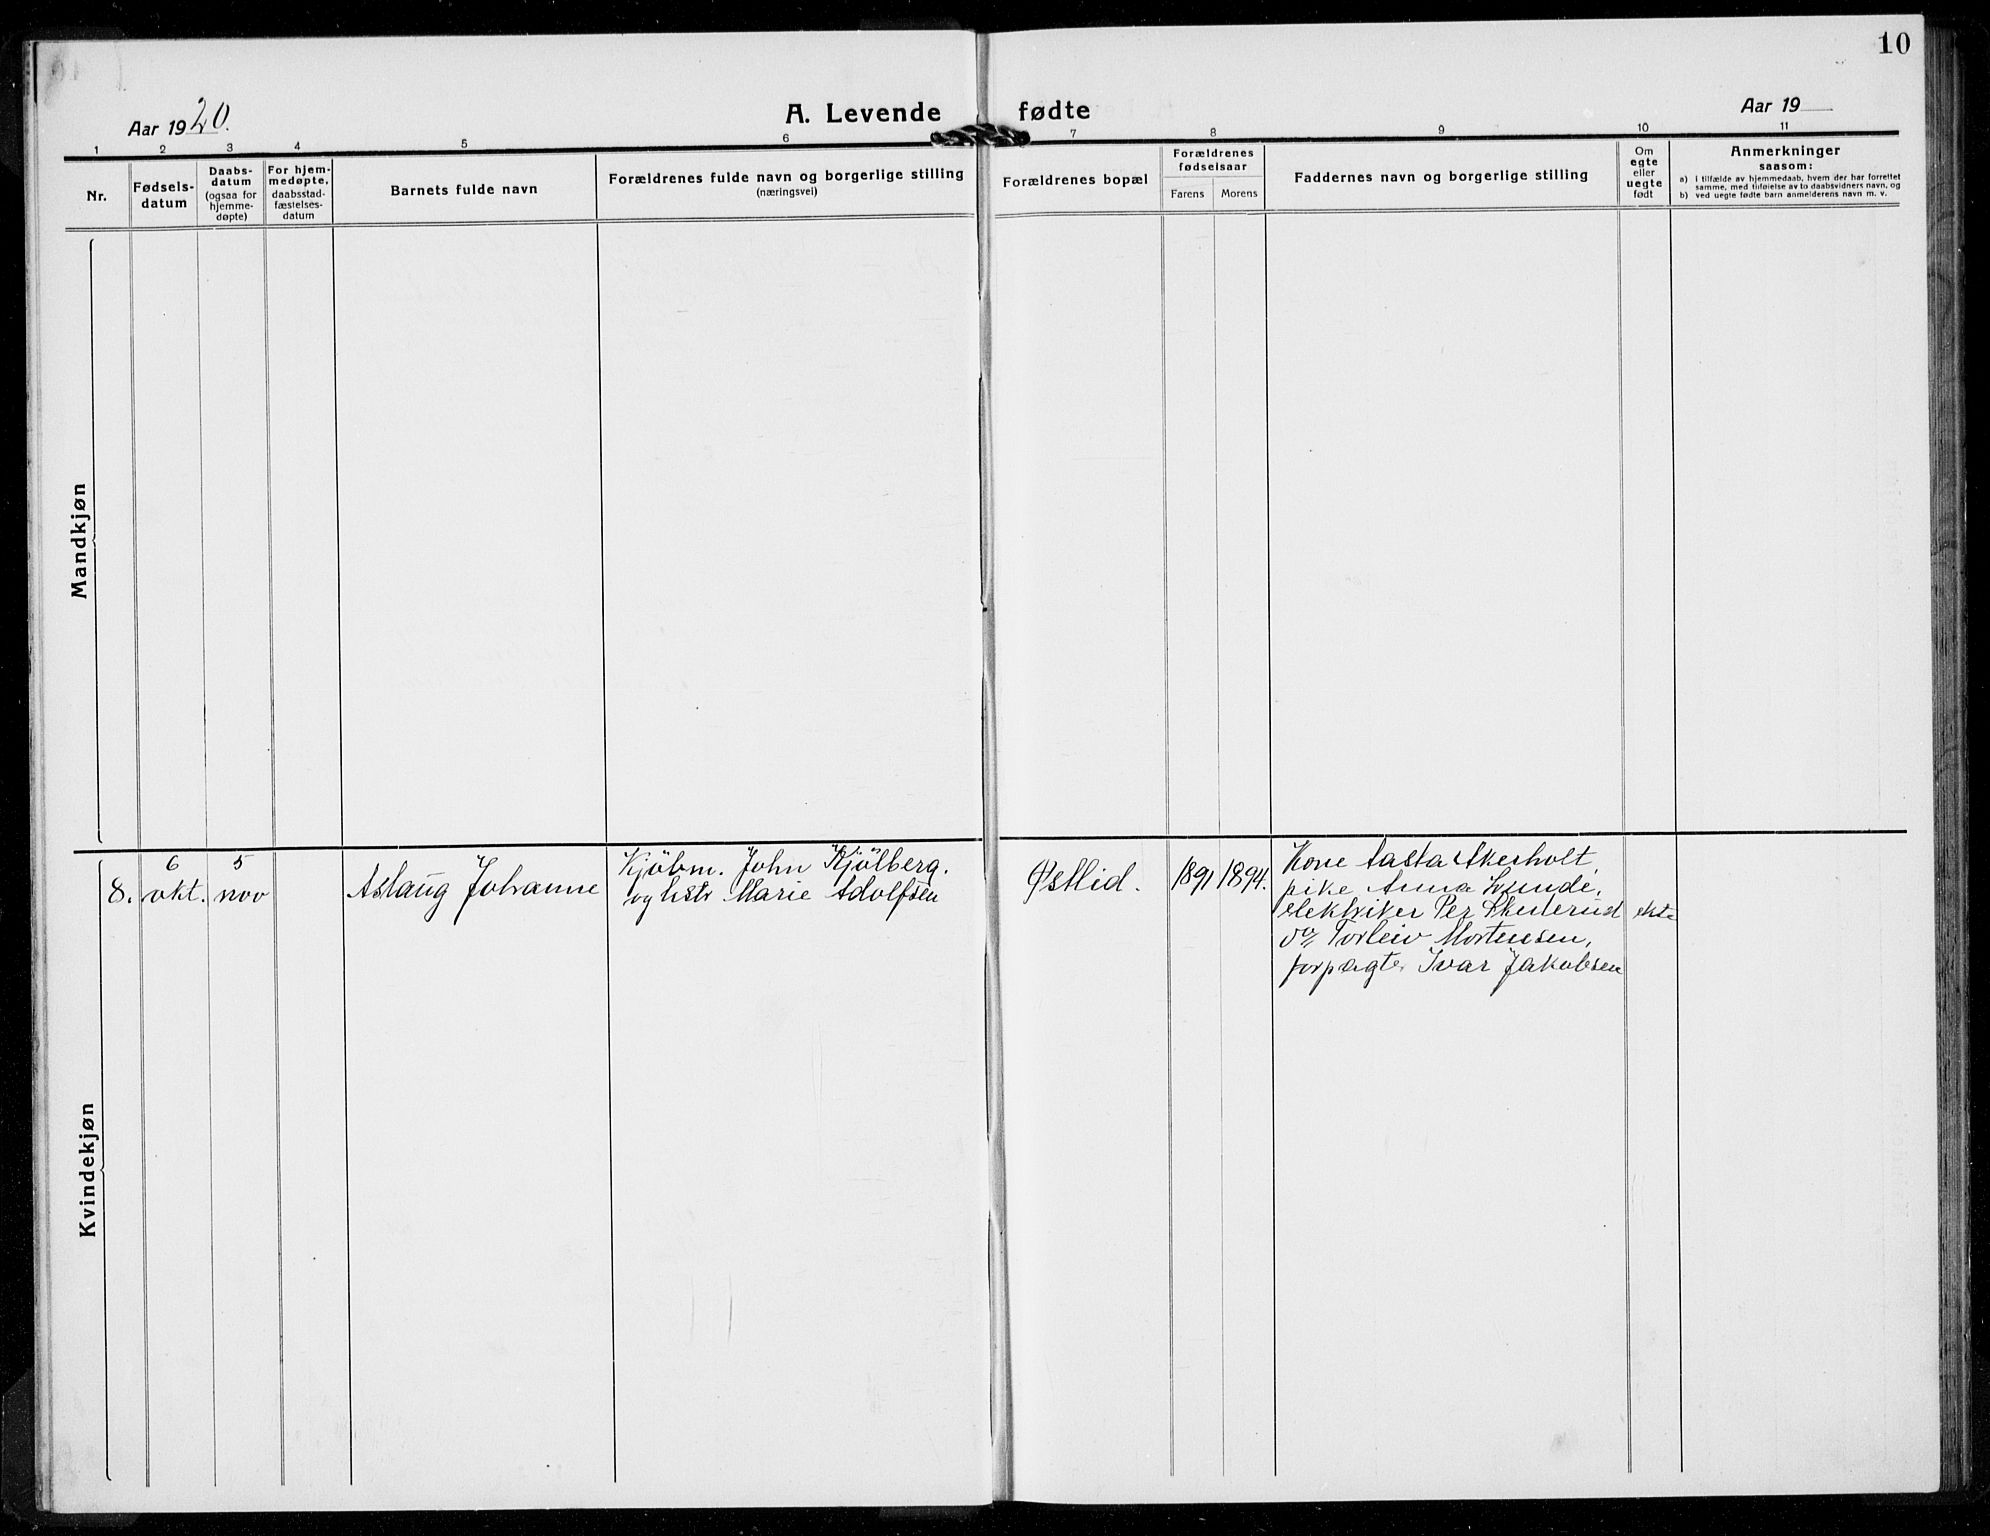 10
Aar 1920.
A. Levende fødte
Aar 19
1 2 3 4 5 6 7 8 9 10 11
Nr.
Fødsels-
datum
Daabs-
datum
(ogsaa for
hjemme-
døpte)
For hjem-
medøpte,
daabsstad-
fæstelses-
datum
Barnets fulde navn
Forældrenes fulde navn og borgerlige stilling
(næringsvei)
Forældrenes bopæl
Forældrenes
fødselsaar
Farens Morens
Faddernes navn og borgerlige stilling
Om
egte
eller
uegte
født
Anmerkninger
saasom:
a) i tilfælde av hjemmedaab, hvem der har forrettet
samme, med tilføielse av to daabsvidners navn, og
b) ved uegte fødte barn anmelderens navn m. v.
Mandkjøn
Kvindekjøn
8.
6
okt.
5
nov
Aslaug Johanne
Kjøbm. John Kjølberg.
og hstr Marie Adolfsen
Østlid.
1891 1894.
Kone Aasta Akerholt,
pike Anna Lunde,
elektriker Per
do Torleiv Mortensen,
forpagter Ivar Jakobsen
ekte